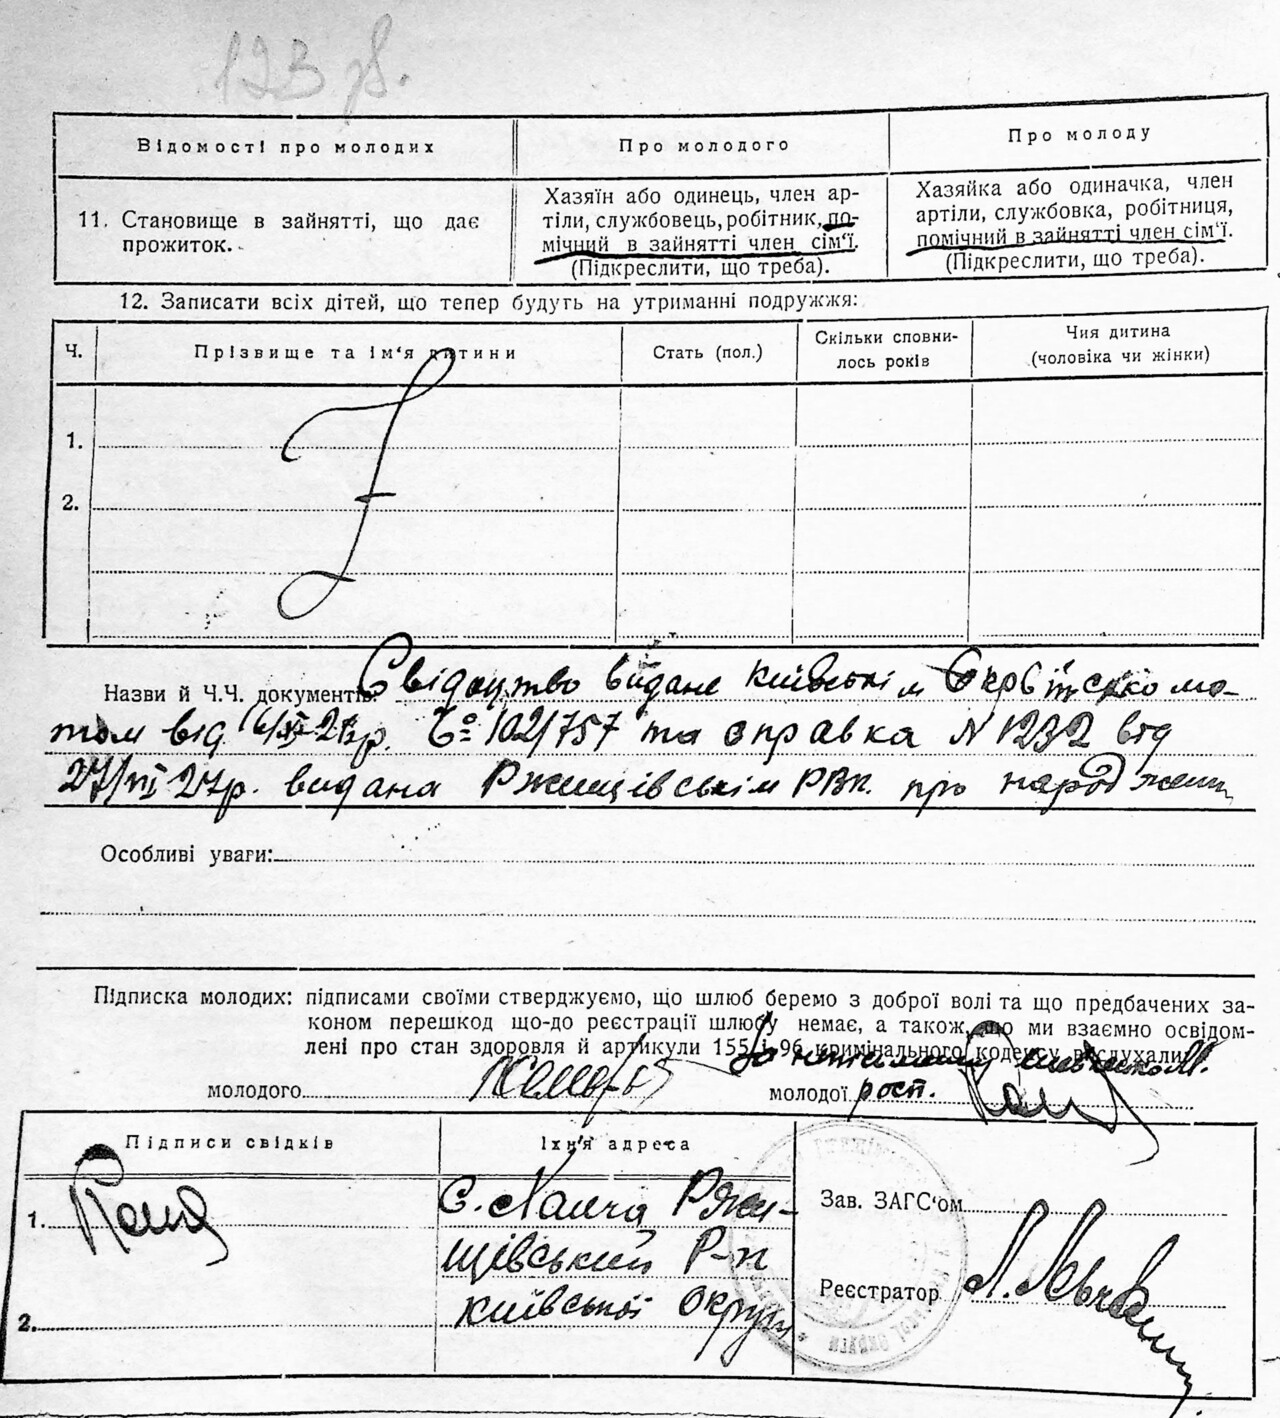 123 зв.
Відомості про молодих
Про молодого
Про молоду
11. Становище в зайнятті, що дає
прожиток.
Хазяїн або одинець, член ар-
тіли, службовець, робітник, по-
мічний в зайнятті член сім'ї.
(Підкреслити, що треба).
Хазяйка або одиначка, член
артіли, службовка, робітниця,
помічний в зайнятті член сім'ї.
(Підкреслити, що треба).
12. Записати всіх дітей, що тепер будуть на утриманні подружжя:
Ч.
Прізвище та ім'я дитини
Стать (пол.)
Скільки сповни-
лось років
Чия дитина
(чоловіка чи жінки)
1.
2.
Назви й Ч.Ч. документів: Свідоцтво видане Київським
том від 102/757 та справка N 1232 від
27/ 27р. видана Ржищівським РВК. про народження
Особливі уваги:
Підписка молодих: підписами своїми стверджуємо, що шлюб беремо з доброї волі та що предбачених за-
коном перешкод що-до реєстрації шлюбу немає, а також, що ми взаємно освідом-
лені про стан здоровля й артикули 155 і 96 кримінального кодексу вислухали.
За неписьменну
молодого
молодої рост.
Підписи свідків
Їхн'я адреса
1.
с. Ханча Ржи-
щівський Р-н
Київської округи
2.
Зав. ЗАГС'ом
Реєстратор